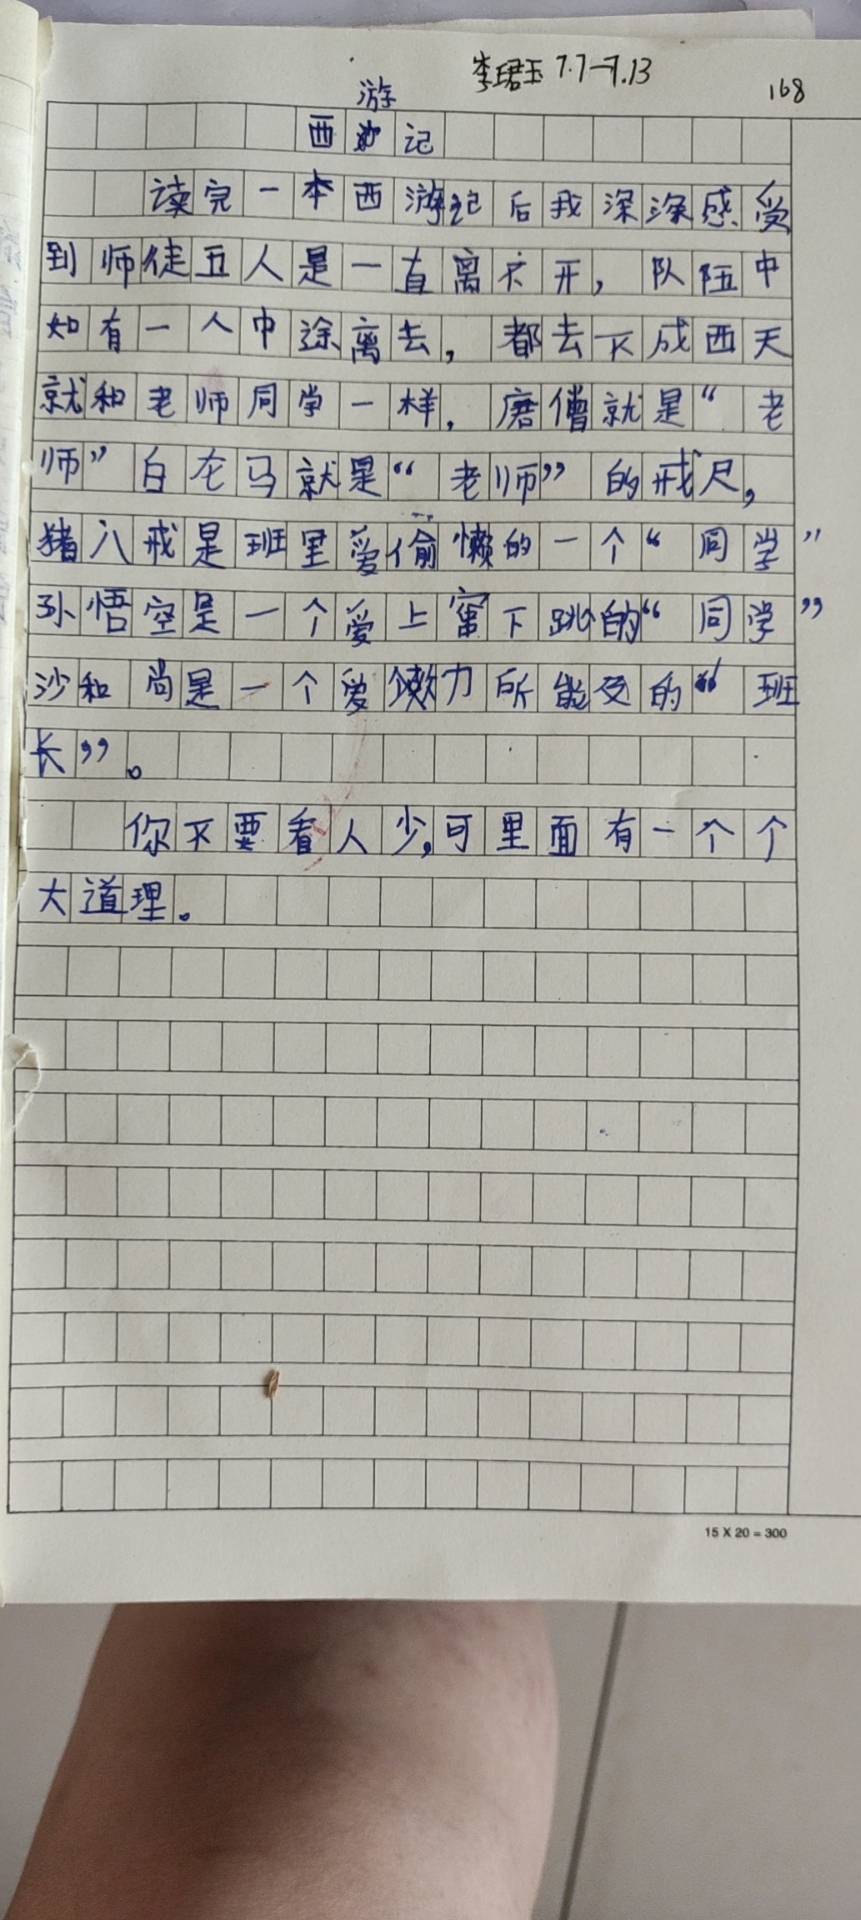 李珺玉 7.7-7.13
168
游
西记
读完一本西游记后我深深感受
到师徒五人是一直离不开，队伍中
如有一人中途离去，都去不成西天
就和老师同学一样，唐僧就是“老
师”白龙马就是“老师”的戒尺，
猪八戒是班里爱偷懒的一个“同学”
孙悟空是一个爱上窜下跳的“同学”
沙和尚是一个爱力所能及的“班
长”。
你不要看人少，可里面有一个个
大道理。
15 X 20 = 300